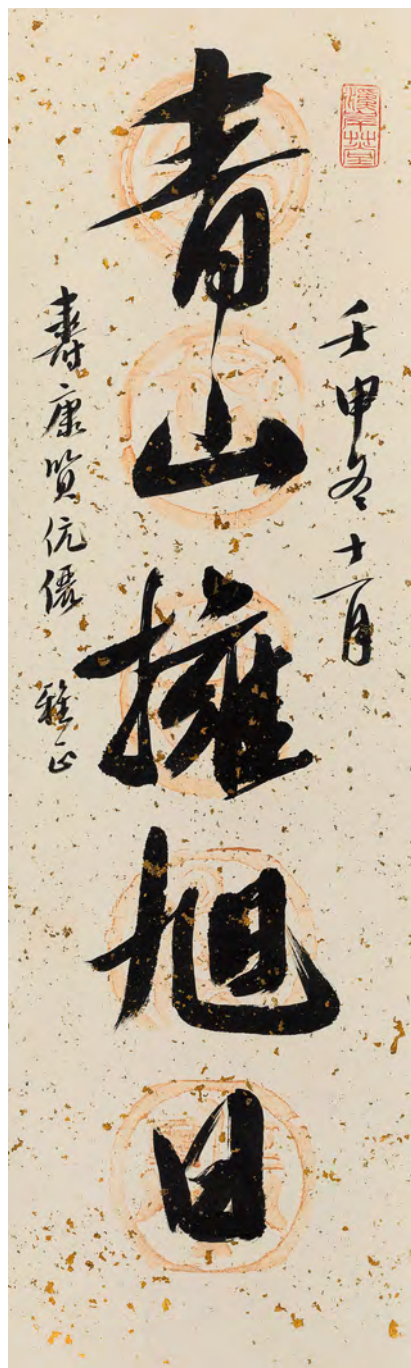 壬申冬十二月
青山擁旭日
壽康賢伉儷 雅正